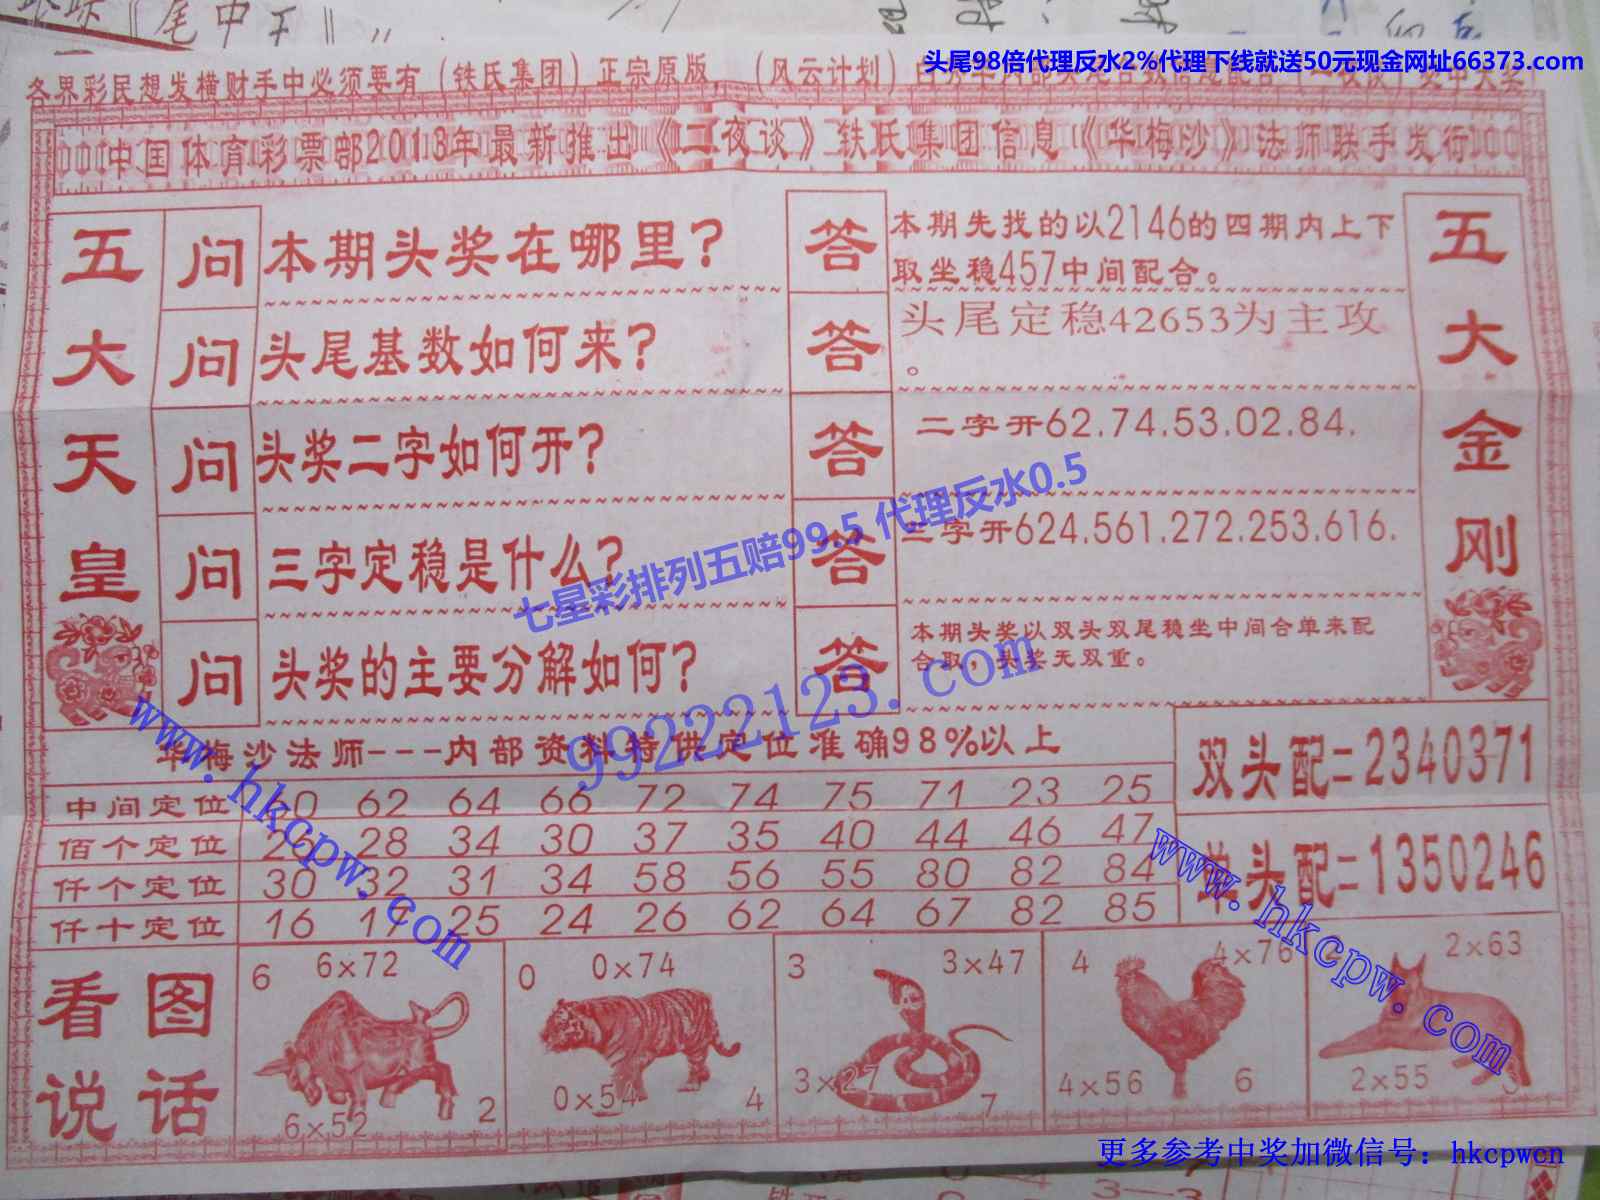 《尾中王》
头尾98倍代理反水2%代理下线就送50元现金网址66373.com
各界彩民想发横财手中必须要有（铁氏集团）正宗原版，（风云计划）
中国体育彩票部2013年最新推出《二夜谈》铁氏集团信息《华梅沙》法师联手发行
五大天皇
问 本期头奖在哪里？
答 本期先找的以2146的四期内上下
取坐稳457中间配合。
问 头尾基数如何来？
答 头尾定稳42653为主攻
。
问 头奖二字如何开？
答 二字开62.74.53.02.84.
问 三字定稳是什么？
答 三字开624.561.272.253.616.
问 头奖的主要分解如何？
答 本期头奖以双头双尾稳坐中间合单来配
合取，头奖无双重。
五大金刚
七星彩排列五赔99.5 代理反水0.5
99222123.com
华梅沙法师---内部资料特供定位准确98%以上
中间定位 60 62 64 66 72 74 75 71 23 25
佰个定位 28 34 30 37 35 40 44 46 47
仟个定位 30 32 31 34 58 56 55 80 82 84
仟十定位 16 17 25 24 26 62 64 67 82 85
双头配=2340371
单头配=1350246
www.hkcpw.com
www.hkcpw.com
看图
说话
6 6×72
6×52 2
0 0×74
0×54 4
3 3×47
3×27 7
4 4×76
4×56 6
2×63
2×55 3
更多参考中奖加微信号：hkcpwcn